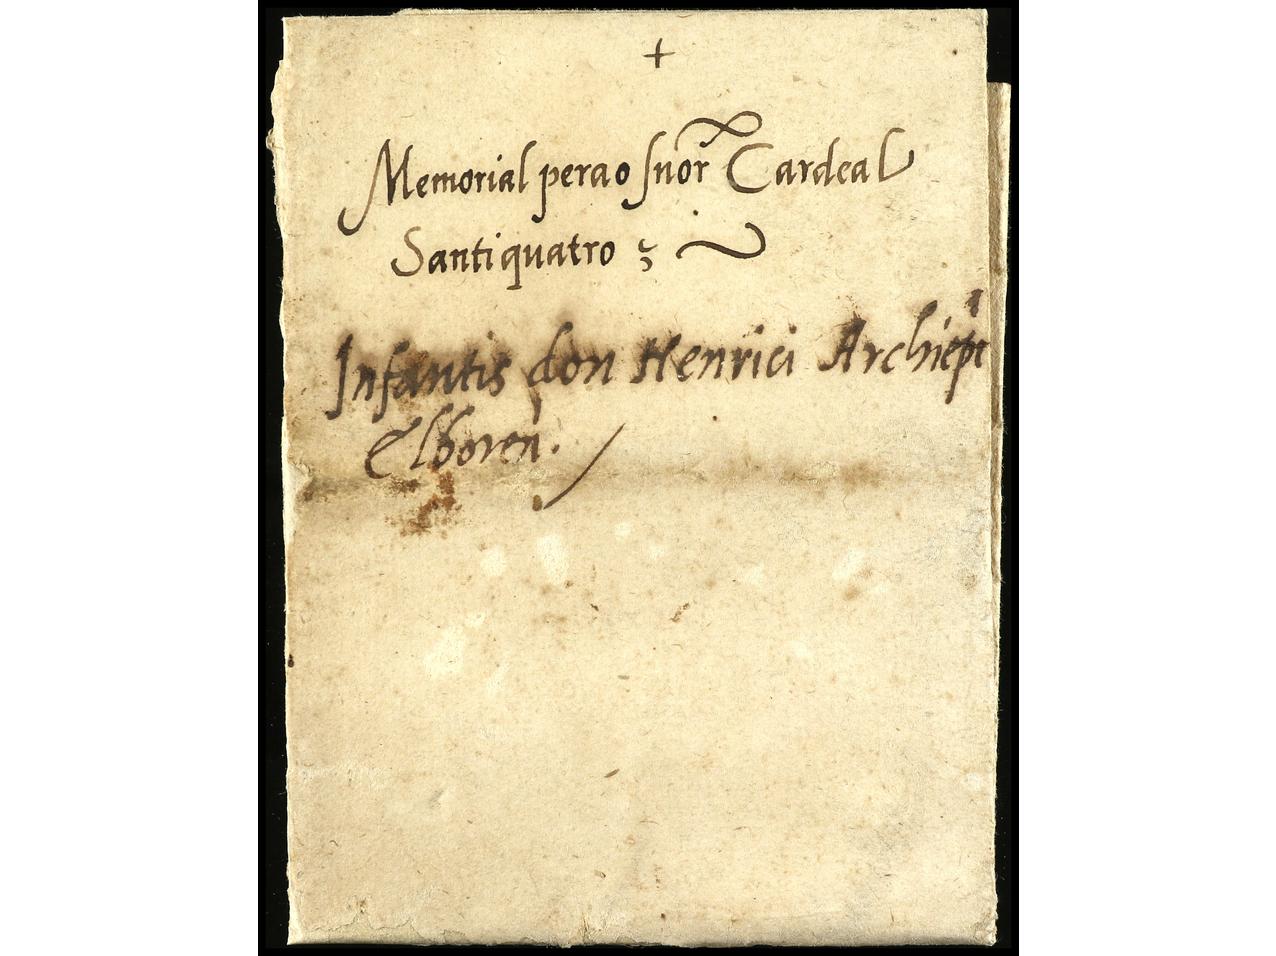 +
Memorial perao snor Cardeal
Santiquatro
Infantis don Henrici Archiepi
Elboren.